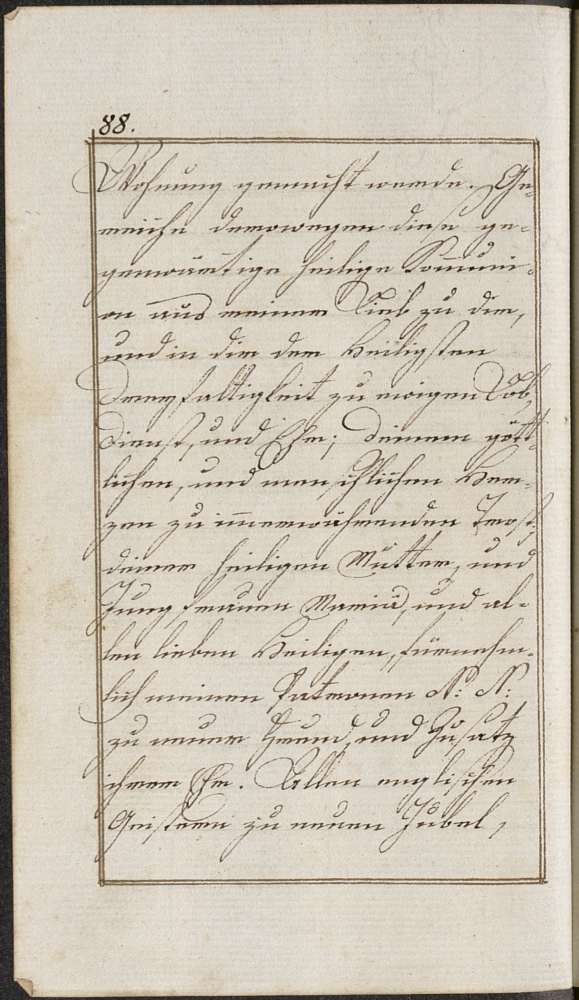 88.
Wohnung gemacht werde. Ge-
reiche derowegen diese ge-
genwärtige heilige Kommuni-
on aus meiner Lieb zu dir,
und in dir der heiligsten
Dreyfaltigkeit zu ewigen Lob,
Dienst, und Ehr; deinem gött-
lichen, und menschlichen Her-
zen zu immerwährenden Trost;
deiner heiligen Mutter, und
Jungfrauen Mariä, und al-
len lieben Heiligen, fürnehm-
lich meinen Patronen N: N:
zu neuer Freud, und Zusatz
ihrer Ehr. Allen englischen
Geistern zu neuen Jubel,